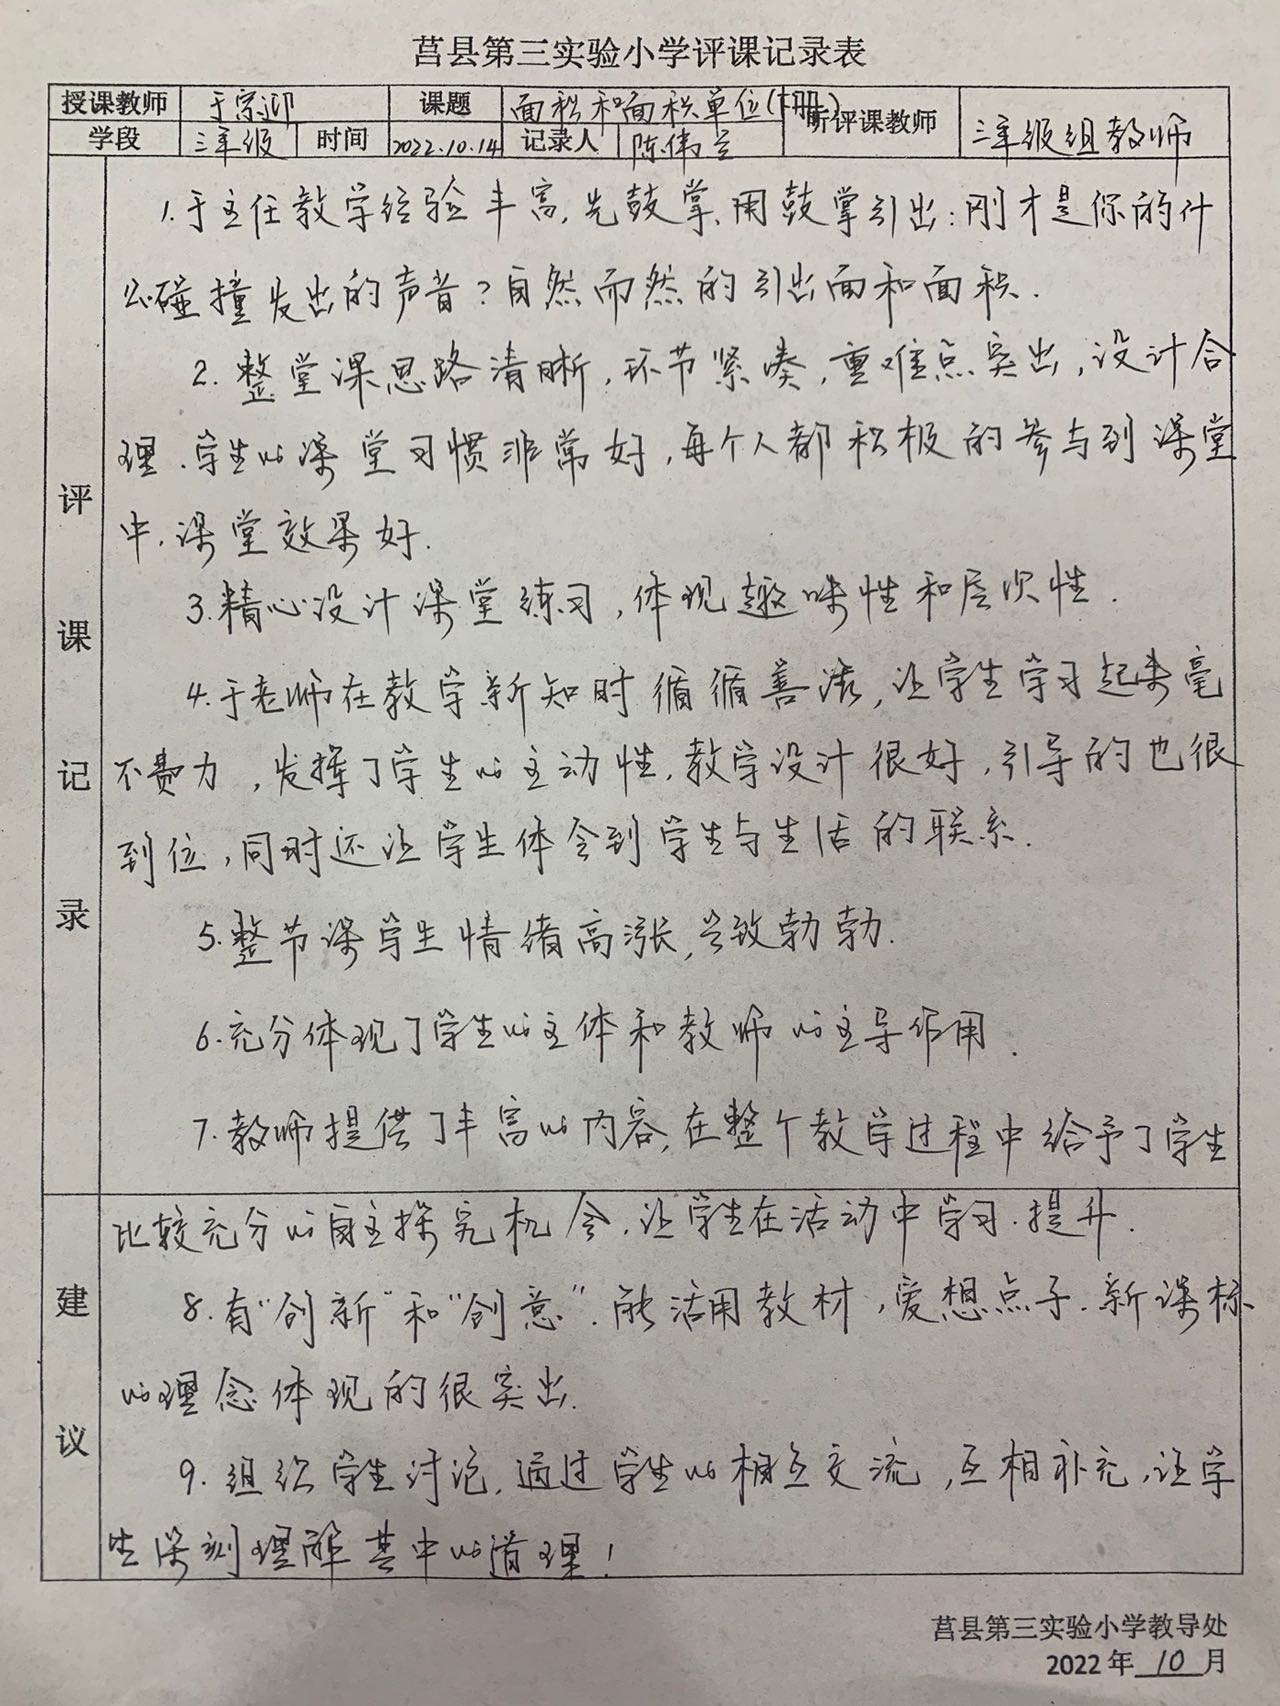 莒县第三实验小学评课记录表
授课教师 于宗 课题 面积和面积单位(下册) 听评课教师 三年级组教师
学段 三年级 时间 2022.10.14 记录人 陈伟兰
评课记录
1.于主任教学经验丰富,先鼓掌,用鼓掌引出:刚才是你的什
么碰撞发出的声音?自然而然的引出面和面积.
2.整堂课思路清晰,环节紧凑,重难点突出,设计合
理.学生的课堂习惯非常好,每个人都积极的参与到课堂
中,课堂效果好.
3.精心设计课堂练习,体现趣味性和层次性.
4.于老师在教学新知时循循善诱,让学生学习起来毫
不费力,发挥了学生的主动性,教学设计很好,引导的也很
到位,同时还让学生体会到学生与生活的联系.
5.整节课学生情绪高涨,兴致勃勃.
6.充分体现了学生的主体和教师的主导作用.
7.教师提供了丰富的内容,在整个教学过程中给予了学生
建议
比较充分的自主探究机会,让学生在活动中学习.提升.
8.有“创新”和“创意”.能活用教材,爱想点子.新课标
的理念体现的很突出.
9.组织学生讨论,通过学生的相互交流,互相补充,让学
生深刻理解其中的道理!
莒县第三实验小学教导处
2022年10月